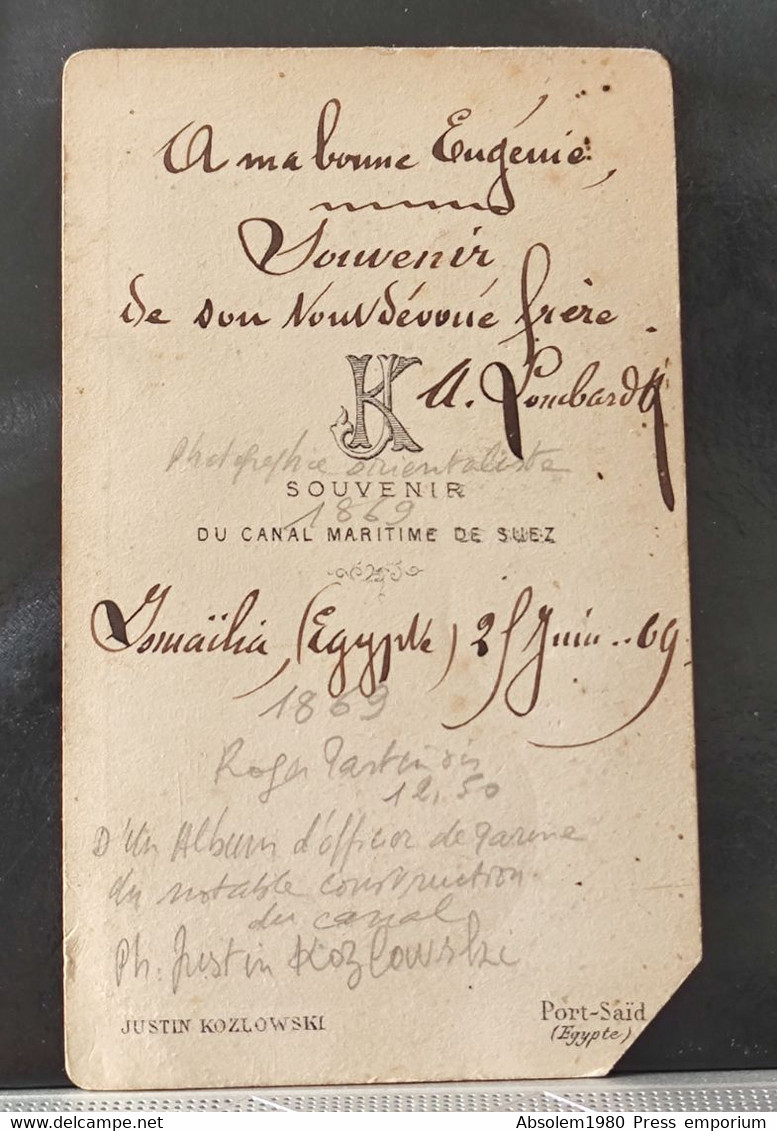 A ma bonne Eugénie,
Souvenir
de son tout dévoué frère.
JK A. Lombard
Photographie orientaliste
SOUVENIR
1869
DU CANAL MARITIME DE SUEZ
Ismaïlia, (Egypte) 25 Juin..69.
1869
Roger
12,50
D'un Album d'officier de
du notable construction
du canal
Ph. Justin Kozlowski
JUSTIN KOZLOWSKI
Port-Saïd
(Egypte)
delcampe.net
Absolem1980 Press emporium